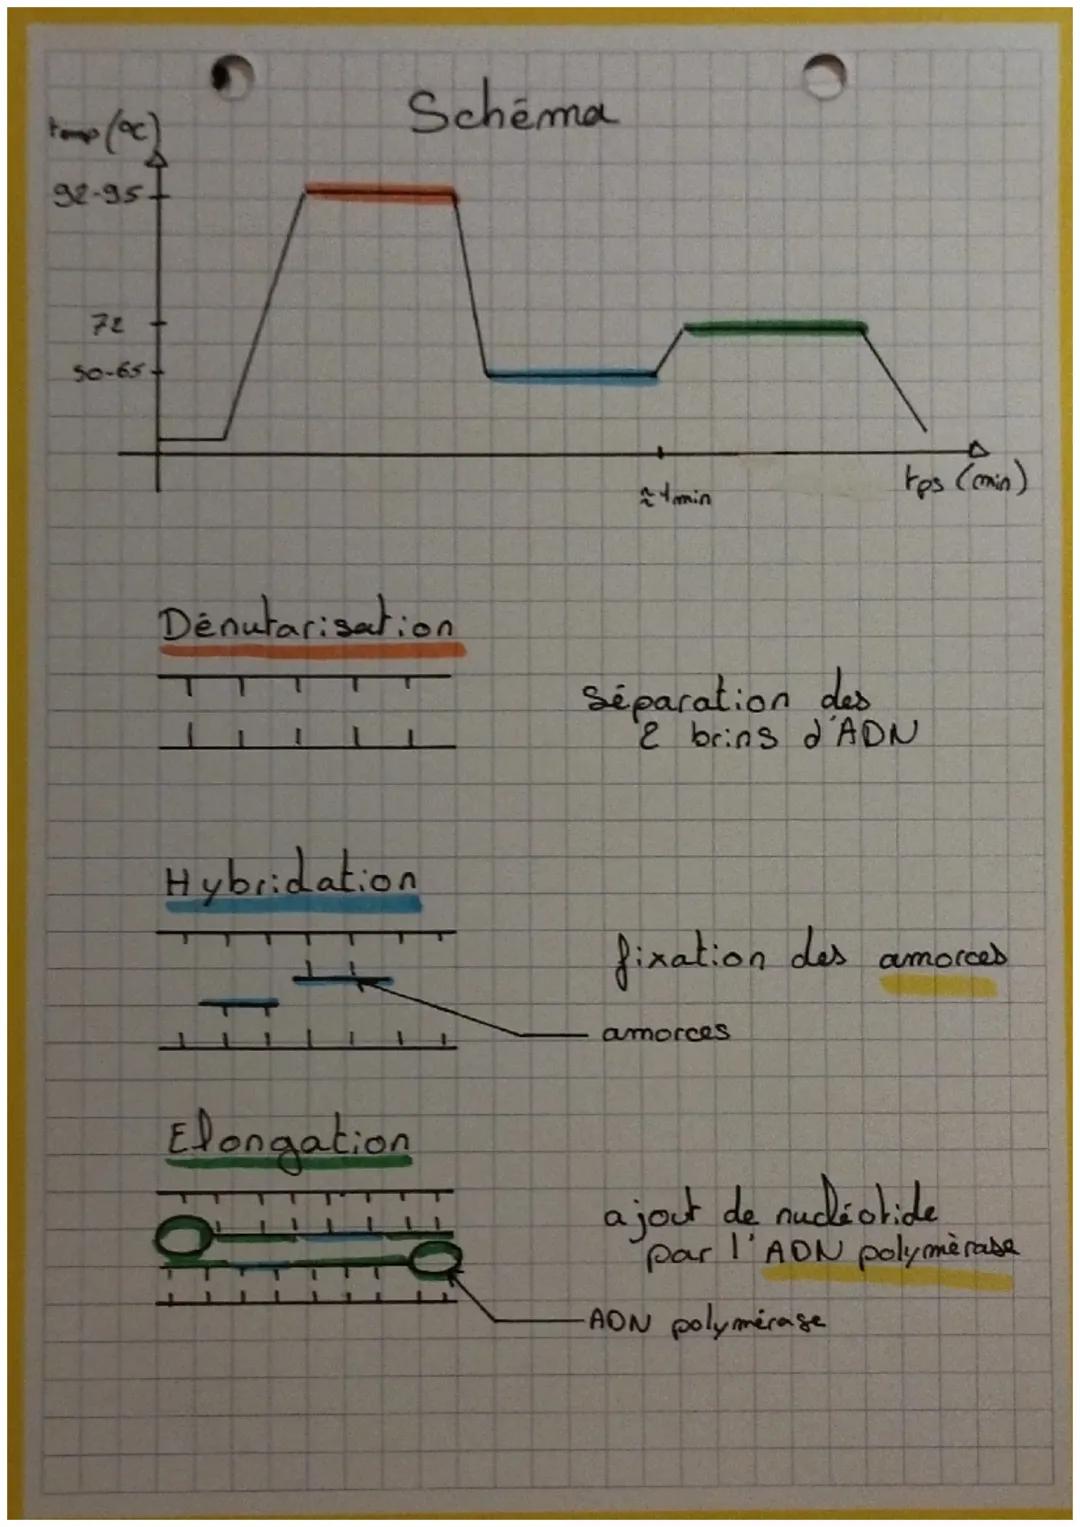 Schéma
temp (°C)
92-95
72
50-65
≈ 1 min
tps (min)
Dénutarisation
Séparation des
2 brins d'ADN
Hybridation
fixation des amorces
amorces
Elongation
ajout de nucléotide
par l'ADN polymèrase
ADN polymérase